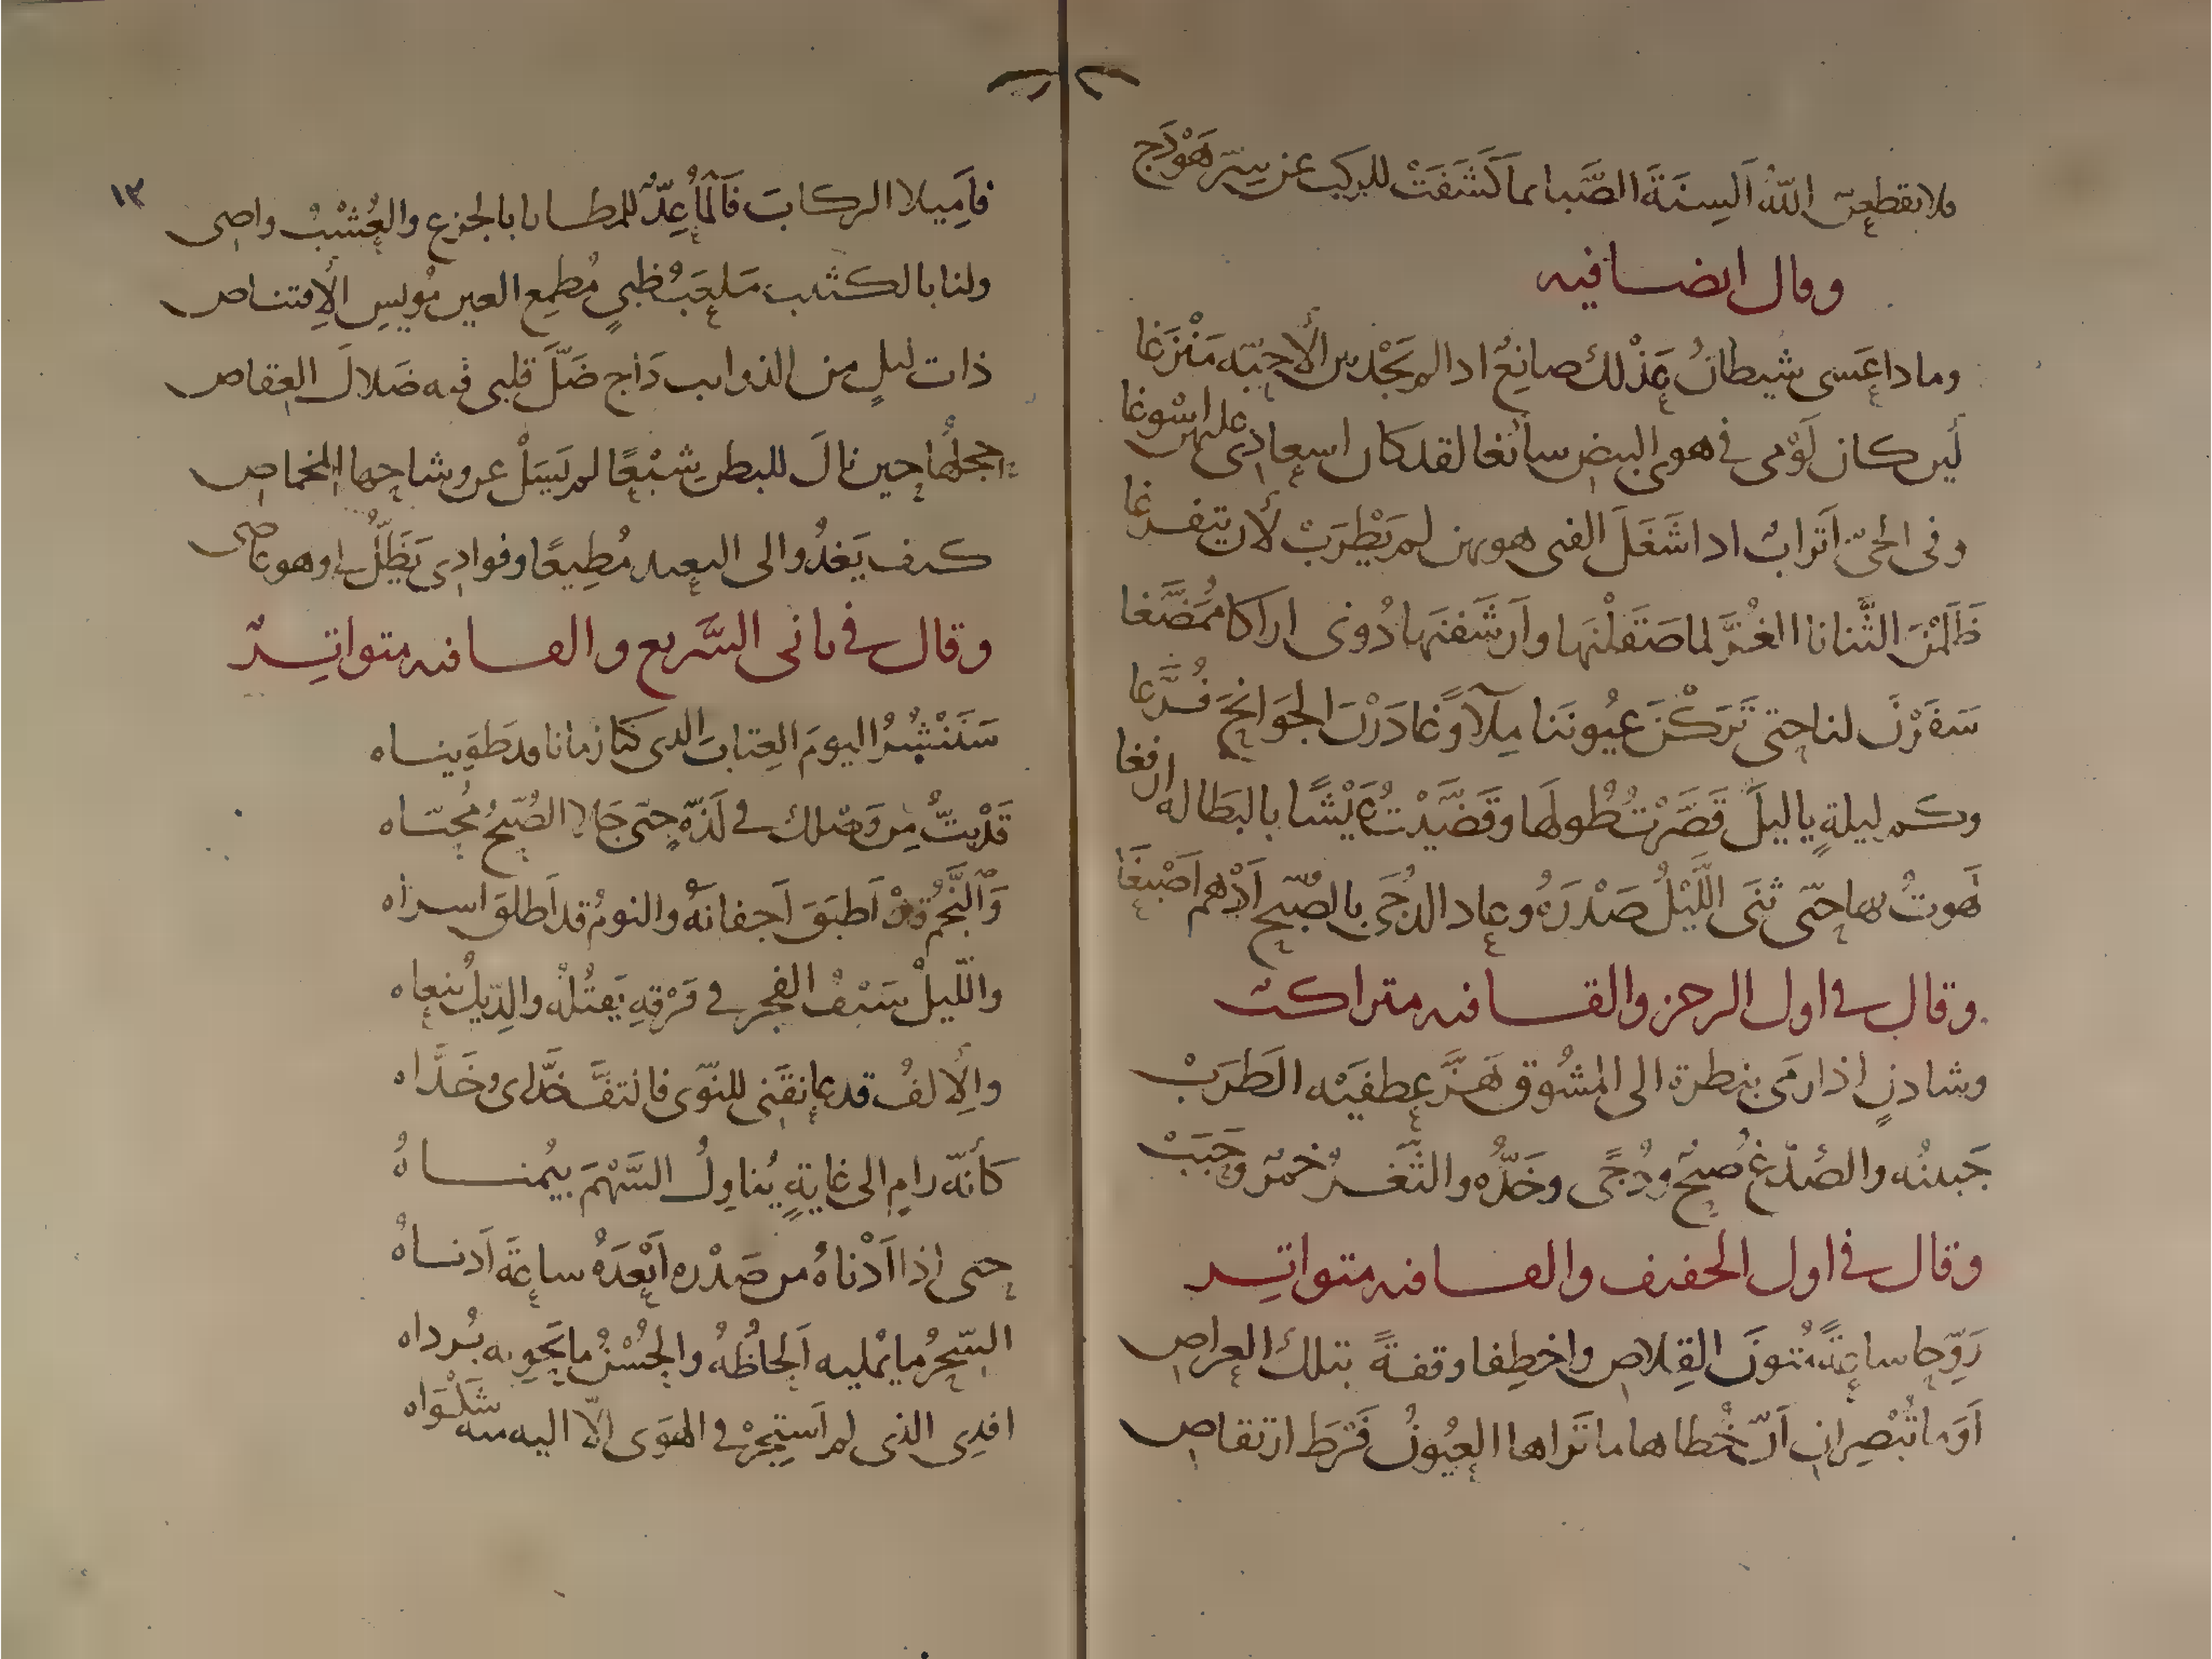 فلا يقطعن اللّه اَلسِنَةَ الصَّبا بما كَشَفَتْ للركب عن سِتر هَوْدَج
وقال ايضا فيه
وماذا عَسى شيطانُ عَذْلك صانِعٌ اذا لم يَجْد من الأحِبّه مَنْزَغا
لَين كان لَوْمى فى هوى البيض سائغا لقد كان اسعادى عليهن اسْوغا
وفى الحىّ اَترابٌ اذا شَغَلَ الفتى هويهن لم يَطْرَبْ لأن يتفرغا
ظَلَمْنَ الثَّنايا الغُرَّ لما صَقَلْنَها واَرشَفنَها دُونى اراكا مُمَضَّغا
سَفَرْنَ لنا حتى تَرَكْنَ عيُونَنا مِلآً وغادَرْنَ الجَوَانحَ فُرَّغا
وكم ليلةٍ ياليلَ قَصَّرْتُ طُولَها وقَضَّيْتُ عَيْشًا بالبَطاله ارفغا
لَهَوتُ بها حتّى ثنَى اللَّيْلُ صَدْرَهُ وعاد الدُجَى بالصُبّح اَدْهم اَصْبَغَا
وقال فى اول الرجز والقافيه متراكبٌ
وشادنٍ اذا رمَى بنظرة الى المشُوق هَزَّ عِطفَيْه الطَرَبْ
جَبينُه والصُدّغ صُبْحٌ ودُجًى وخَدُّه والثَّغرُ خمرٌ وحَبَبْ
وقال فى اول الخفيف والقافيه متواتِر
رَوِّحا ساعةً مُتونَ القِلاص واخطِفا وقفةً بتلك العراص
اَوَما تُبْصِران اَنّ خُطاها ما تَراها العيُونُ فَرطَ ارتقاص
١٣
فاَمِيلا الركابَ فَالمأُ عِدٌّ للمطايا بالجزع والعُشْبُ واصى
ولنا بالكثيب مَلعَبُ ظبىٍ مُطمِع العين مُويسِ الاِقتناص
ذات ليلٍ من الذوايب دَاج ضَلَّ قلبى فيه ضَلالَ العِقاص
حجلُها حين نالَ للبطن شِبْعًا لم يَسَلْ عن وشاحها المخماص
كيف يَغدُوا الى البعيد مُطِيعًا وفوادى يَظَلُّ لى وهو عاصى
وقال فى ثانى السَّريع والقافيه متواتِرٌ
سَنَنْشُرُ اليومَ العِتابَ الذى كنا زمانا قد طَوَيناه
قَدْ بِتُّ مِن وَصْلك فى لَذّةٍ حتّى جَلا الصُبْحُ مُحيّاه
وَالنَّجْمُ قدْ اَطبَقَ اَجفانَهُ والنومُ قد اَطلق اسراه
واللّيلُ سَيْفُ الفجر فى فَرْقِهِ يَقتُلُه والدِيكُ يُنعاه
واِلالفُ قد عانقَنى للنّوَى فالتفَّ خدّاى وخَدَّاه
كأنّه رامٍ الى غايةٍ يُناوِلُ السَّهْمَ بيُمناهُ
حتى اذا اَدْناهُ من صَدْره اَبْعَدَهُ ساعةَ اَدناهُ
السِّحرُ ما يُمليه اَلحاظُهُ والحُسْنُ ما يَحوِيه بُرداه
افدِى الذى لم اَستَجِرْ فى الهَوَى الّا اليه منه شَكْوَاه